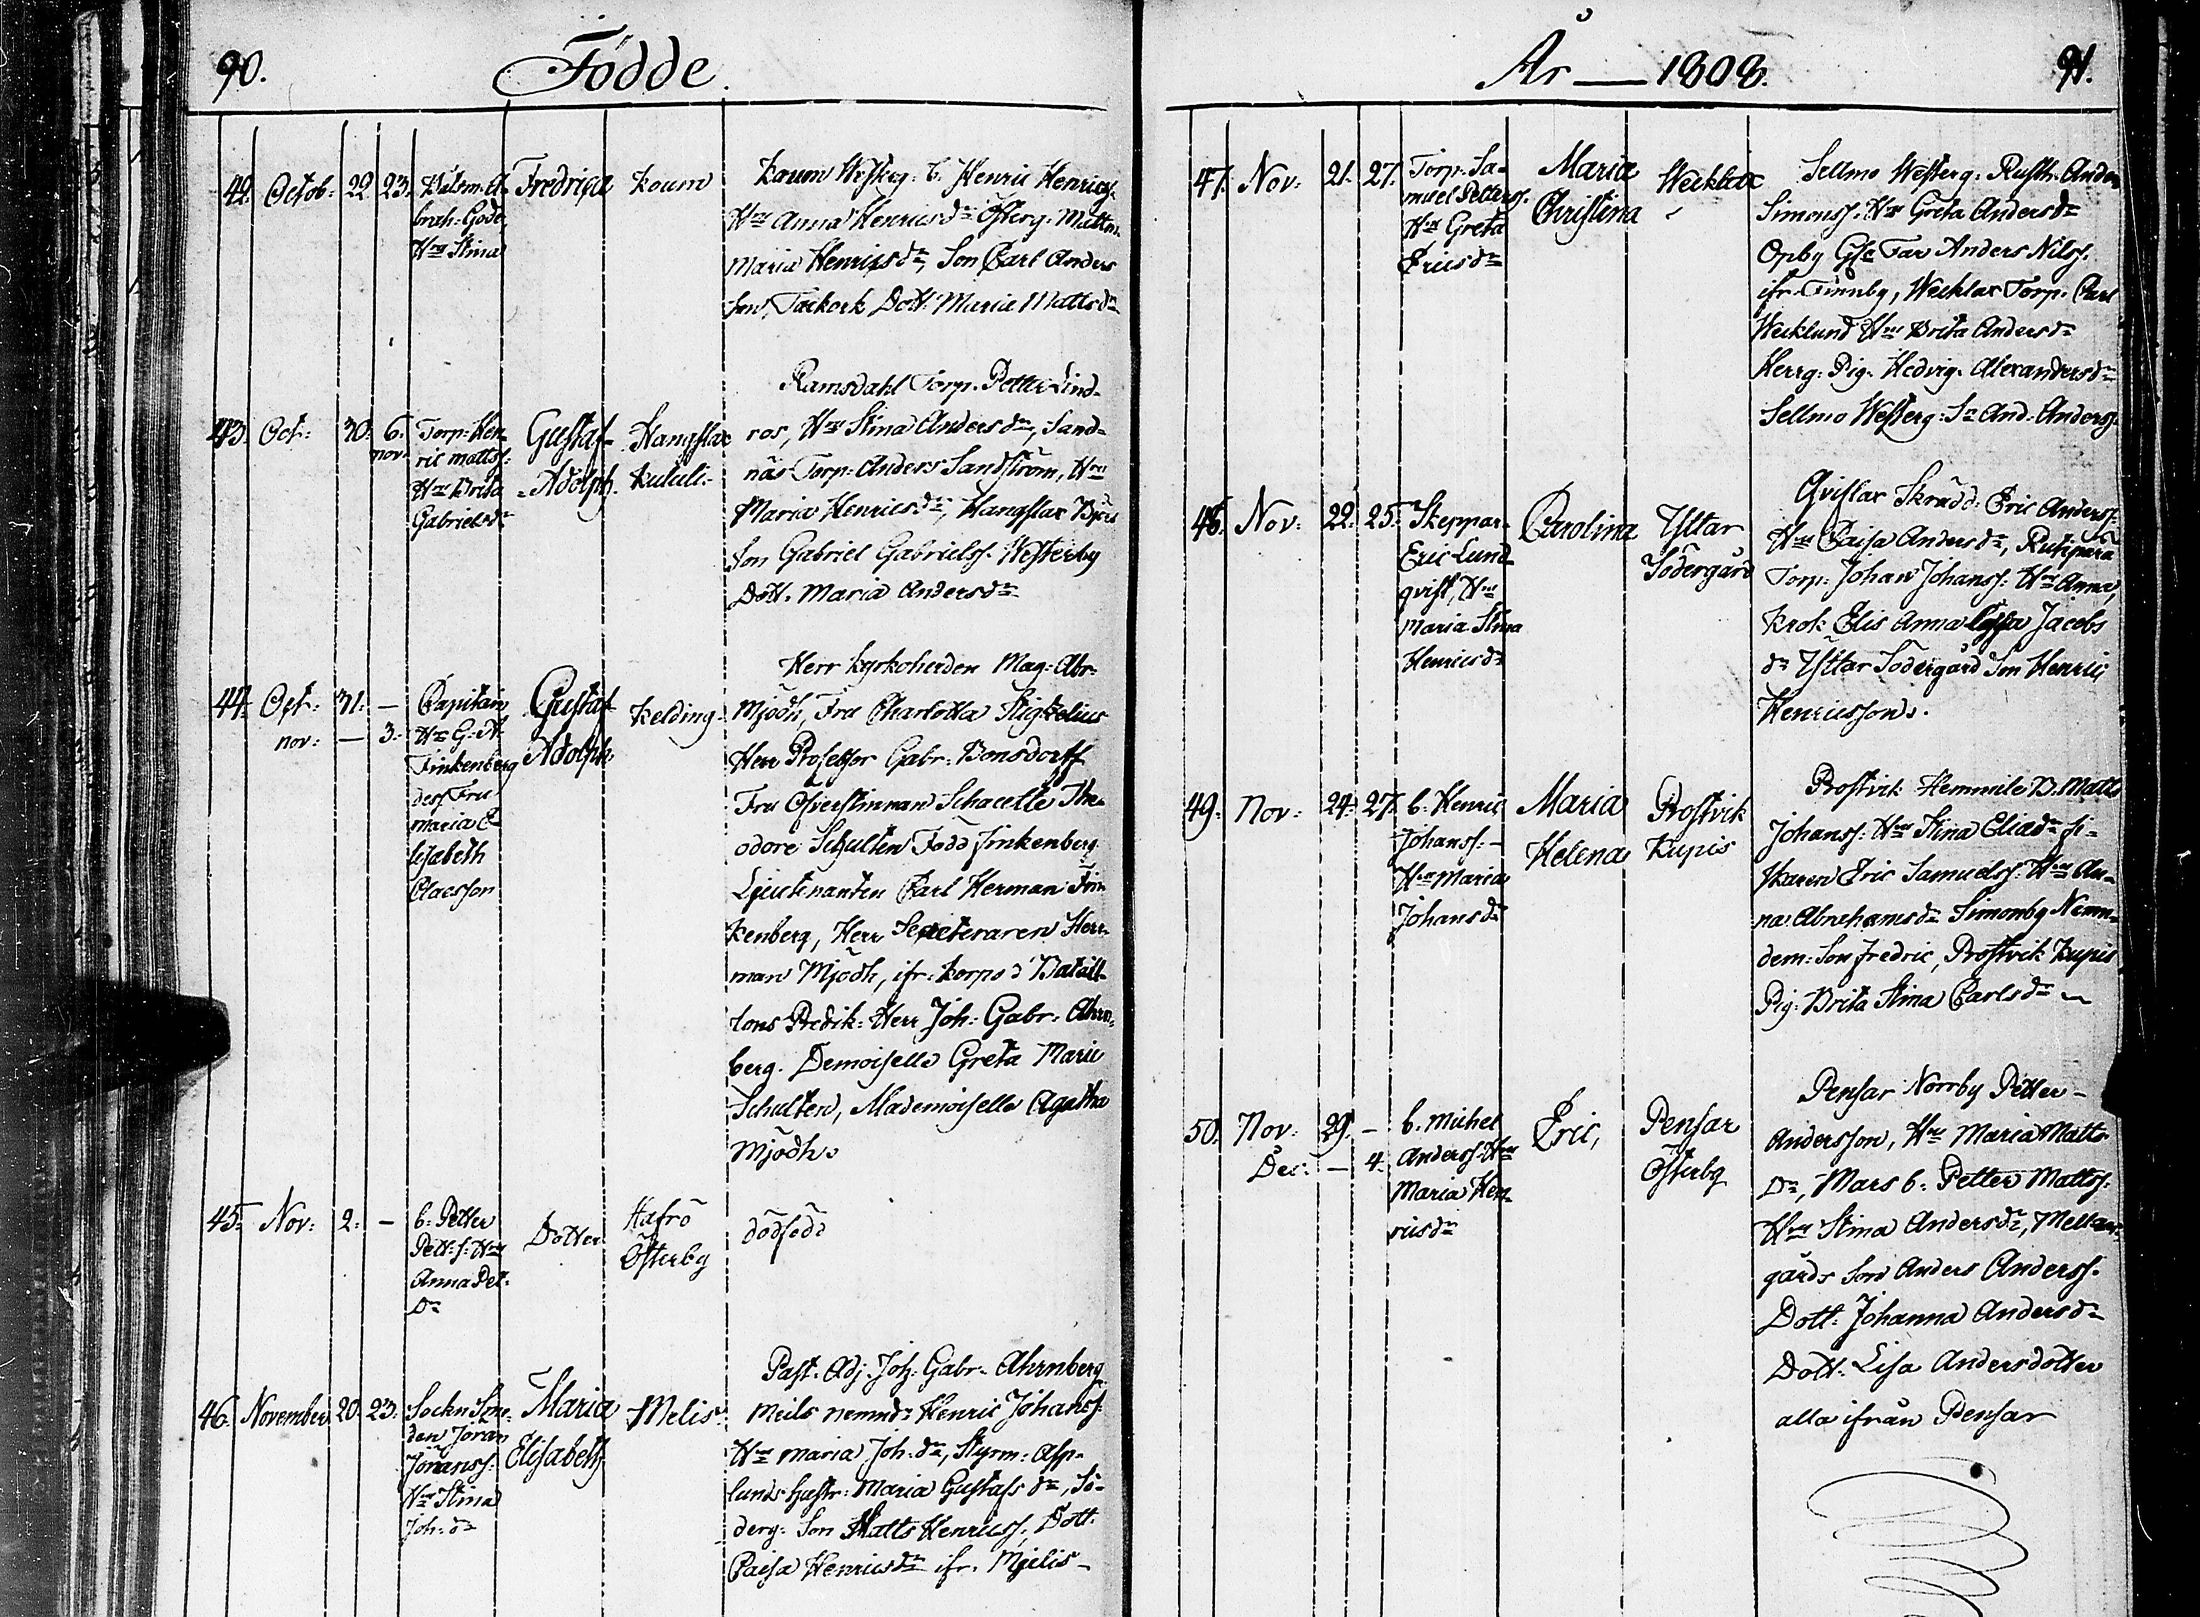 90.
Födde.
42. Octob: 22 23. Båtsm. A-
brah: Gode,
Hru Stina
Fredrica
Koum
Koum Westerg: b. Henric Henricss.
Hru Anna Henricsdr Österg. Mattss.
Maria Henricsdr, Son Carl Anders
son, Tackork Dott. Maria Mattsdr
43. Oct: 30. 6. nov.
Torp: Hen-
ric Mattss:
Hru Brita
Gabrielsdr
Gustaf-
Adolph.
Hangslax
Kululi.
Ramsdahl Torp. Petter Lind-
ros, Hru Stina Andersdr, Sand-
näs Torp: Anders Sandström, Hru
Maria Henricsdr, Hangslax Bjers
Son Gabriel Gabrielss. Westerby
Dott. Maria Andersdr
44. Oct: 31. —
nov: — 3.
Capitain
Hr G. A.
Finkenberg
dess Fru
Maria E-
lisabeth
Claesson
Gustaf
Adolph.
Kelding
Herr Kyrkoherden Mag: Abr:
Mjödh, Fru Charlotta Stigzelius
Herr Professor Gabr: Bonsdorff
Fru Öfverstinnan Schacette The-
odore Schulten Född Finkenberg
Lieutenanten Carl Herman Fin-
kenberg, Herr Secreteraren Her-
man Mjödh, ifr: Korpo d Batail-
lons Predik: Herr Joh: Gabr: Ahrn-
berg. Demoiselle Greta Marie
Schulten, Mademoiselle Agatha
Mjödh.
45. Nov: 2. —
b: Petter
Pett:s: Hru
Anna Pet-
Dr
Dotter
Hafrö
Österby
dödfödd
46. November 20. 23.
Sockn Sme-
den Jöran
Johanss:
Hru Stina
Joh:dr
Maria
Elisabeth
Melis
Past. Adj. Joh: Gabr. Ahrnberg
Meils nemnd: Henric Johanss:
Hru Maria Joh:dr, Styrm: Asp-
lunds hustr: Maria Gustafs dr, Sö-
derg: Son Matts Henricss. Dott.
Caisa Henricsdr ifr. Mjelis-
År — 1808.
91.
47. Nov: 21. 27.
Torp: Sa-
muel Petterss.
Hru Greta
Ericsdr
Maria
Christina
Wecklax
Sellmo Westerg: Rusth: Anders
Simonss. Hru Greta Andersdr
Opby Gse Far Anders Nilss.
ifr. Finnby, Wecklax Torp. Carl
Wecklund Hru Brita Andersdr
Herrg: Pig. Hedvig Alexandersdr
Sellmo Westerg: Sn And. Anderss.
48. Nov: 22. 25.
Skeppar-
Eric Lund-
qvist, Hru
Maria Stina
Henricsdr
Carolina
Yttar
Södergård
Qvislax Skrädd: Eric Anderss:
Hru Caisa Andersdr,
Torp: Johan Johanss: Hru Anna,
Krok Elis Anna Jacobs
dr Yttar Södergård Son Henric
Henricsson.
49. Nov: 24. 27.
b: Henric
Johanss:-
Hru Maria
Johansdr
Maria
Helena
Prostvik
Kupis
Prostvik Hemmile B. Matts
Johanss: Hru Stina Eliædr fi-
skaren Eric Samuelss: Hru An-
na Abrahamsdr Simonby Nemn-
dem: Son Fredric, Prostvik Kupis
Pig: Brita Stina Carlsdr
50. Nov: 29. —
Dec: — 4.
b. Michel
Anderss: Hru
Maria Hen-
ricsdr
Eric,
Pensar
Österby
Pensar Norrby Petter-
Andersson, Hru Maria Matts-
Dr, Mars b: Petter Mattss:
Hru Stina Andersdr, Mellan-
gårds Son Anders Anderss.
Dott: Johanna Andersdr
Dott: Lisa Andersdotter
alla ifrån Pensar